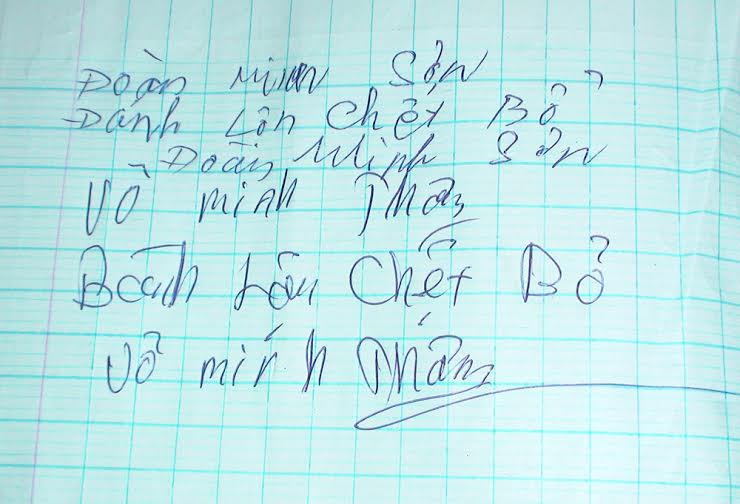 Đoàn Minh Sơn
Đánh Lộn Chết Bỏ
Đoàn Minh Sơn
Võ minh Thân
Bành Lộn Chết Bỏ
Võ minh Thân